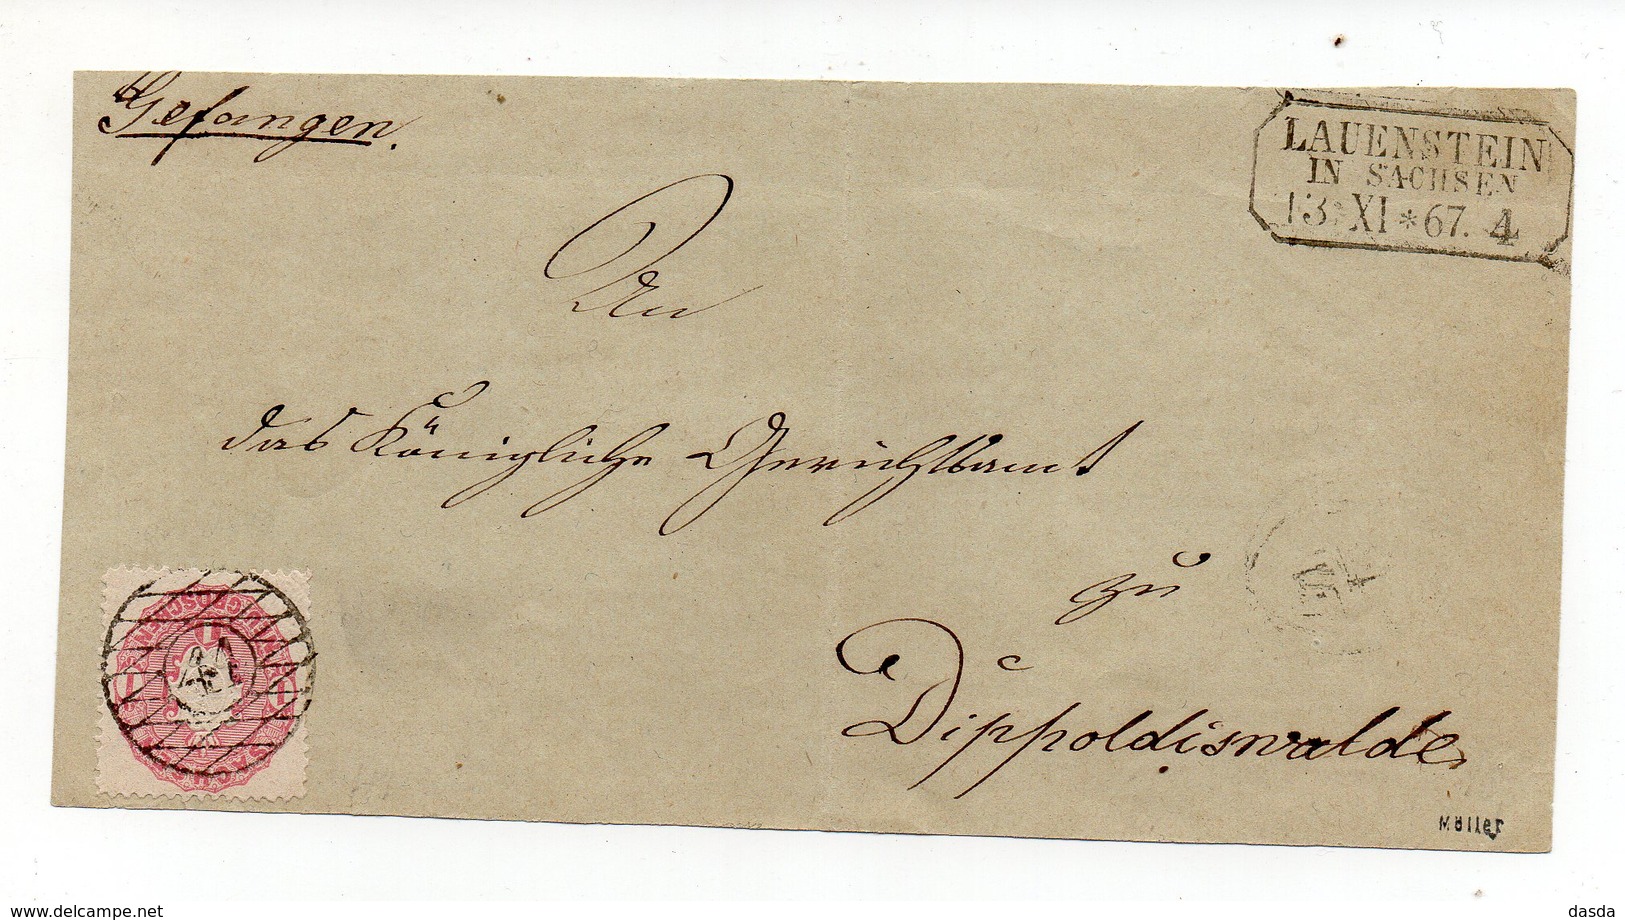 Gefangen.
LAUENSTEIN
IN SACHSEN
13. XI * 67. 4
An
das Königliche Gerichtsamt
zu
Dippoldiswalde
NEUGROSCH
1
Möller
www.delcampe.net
dasda